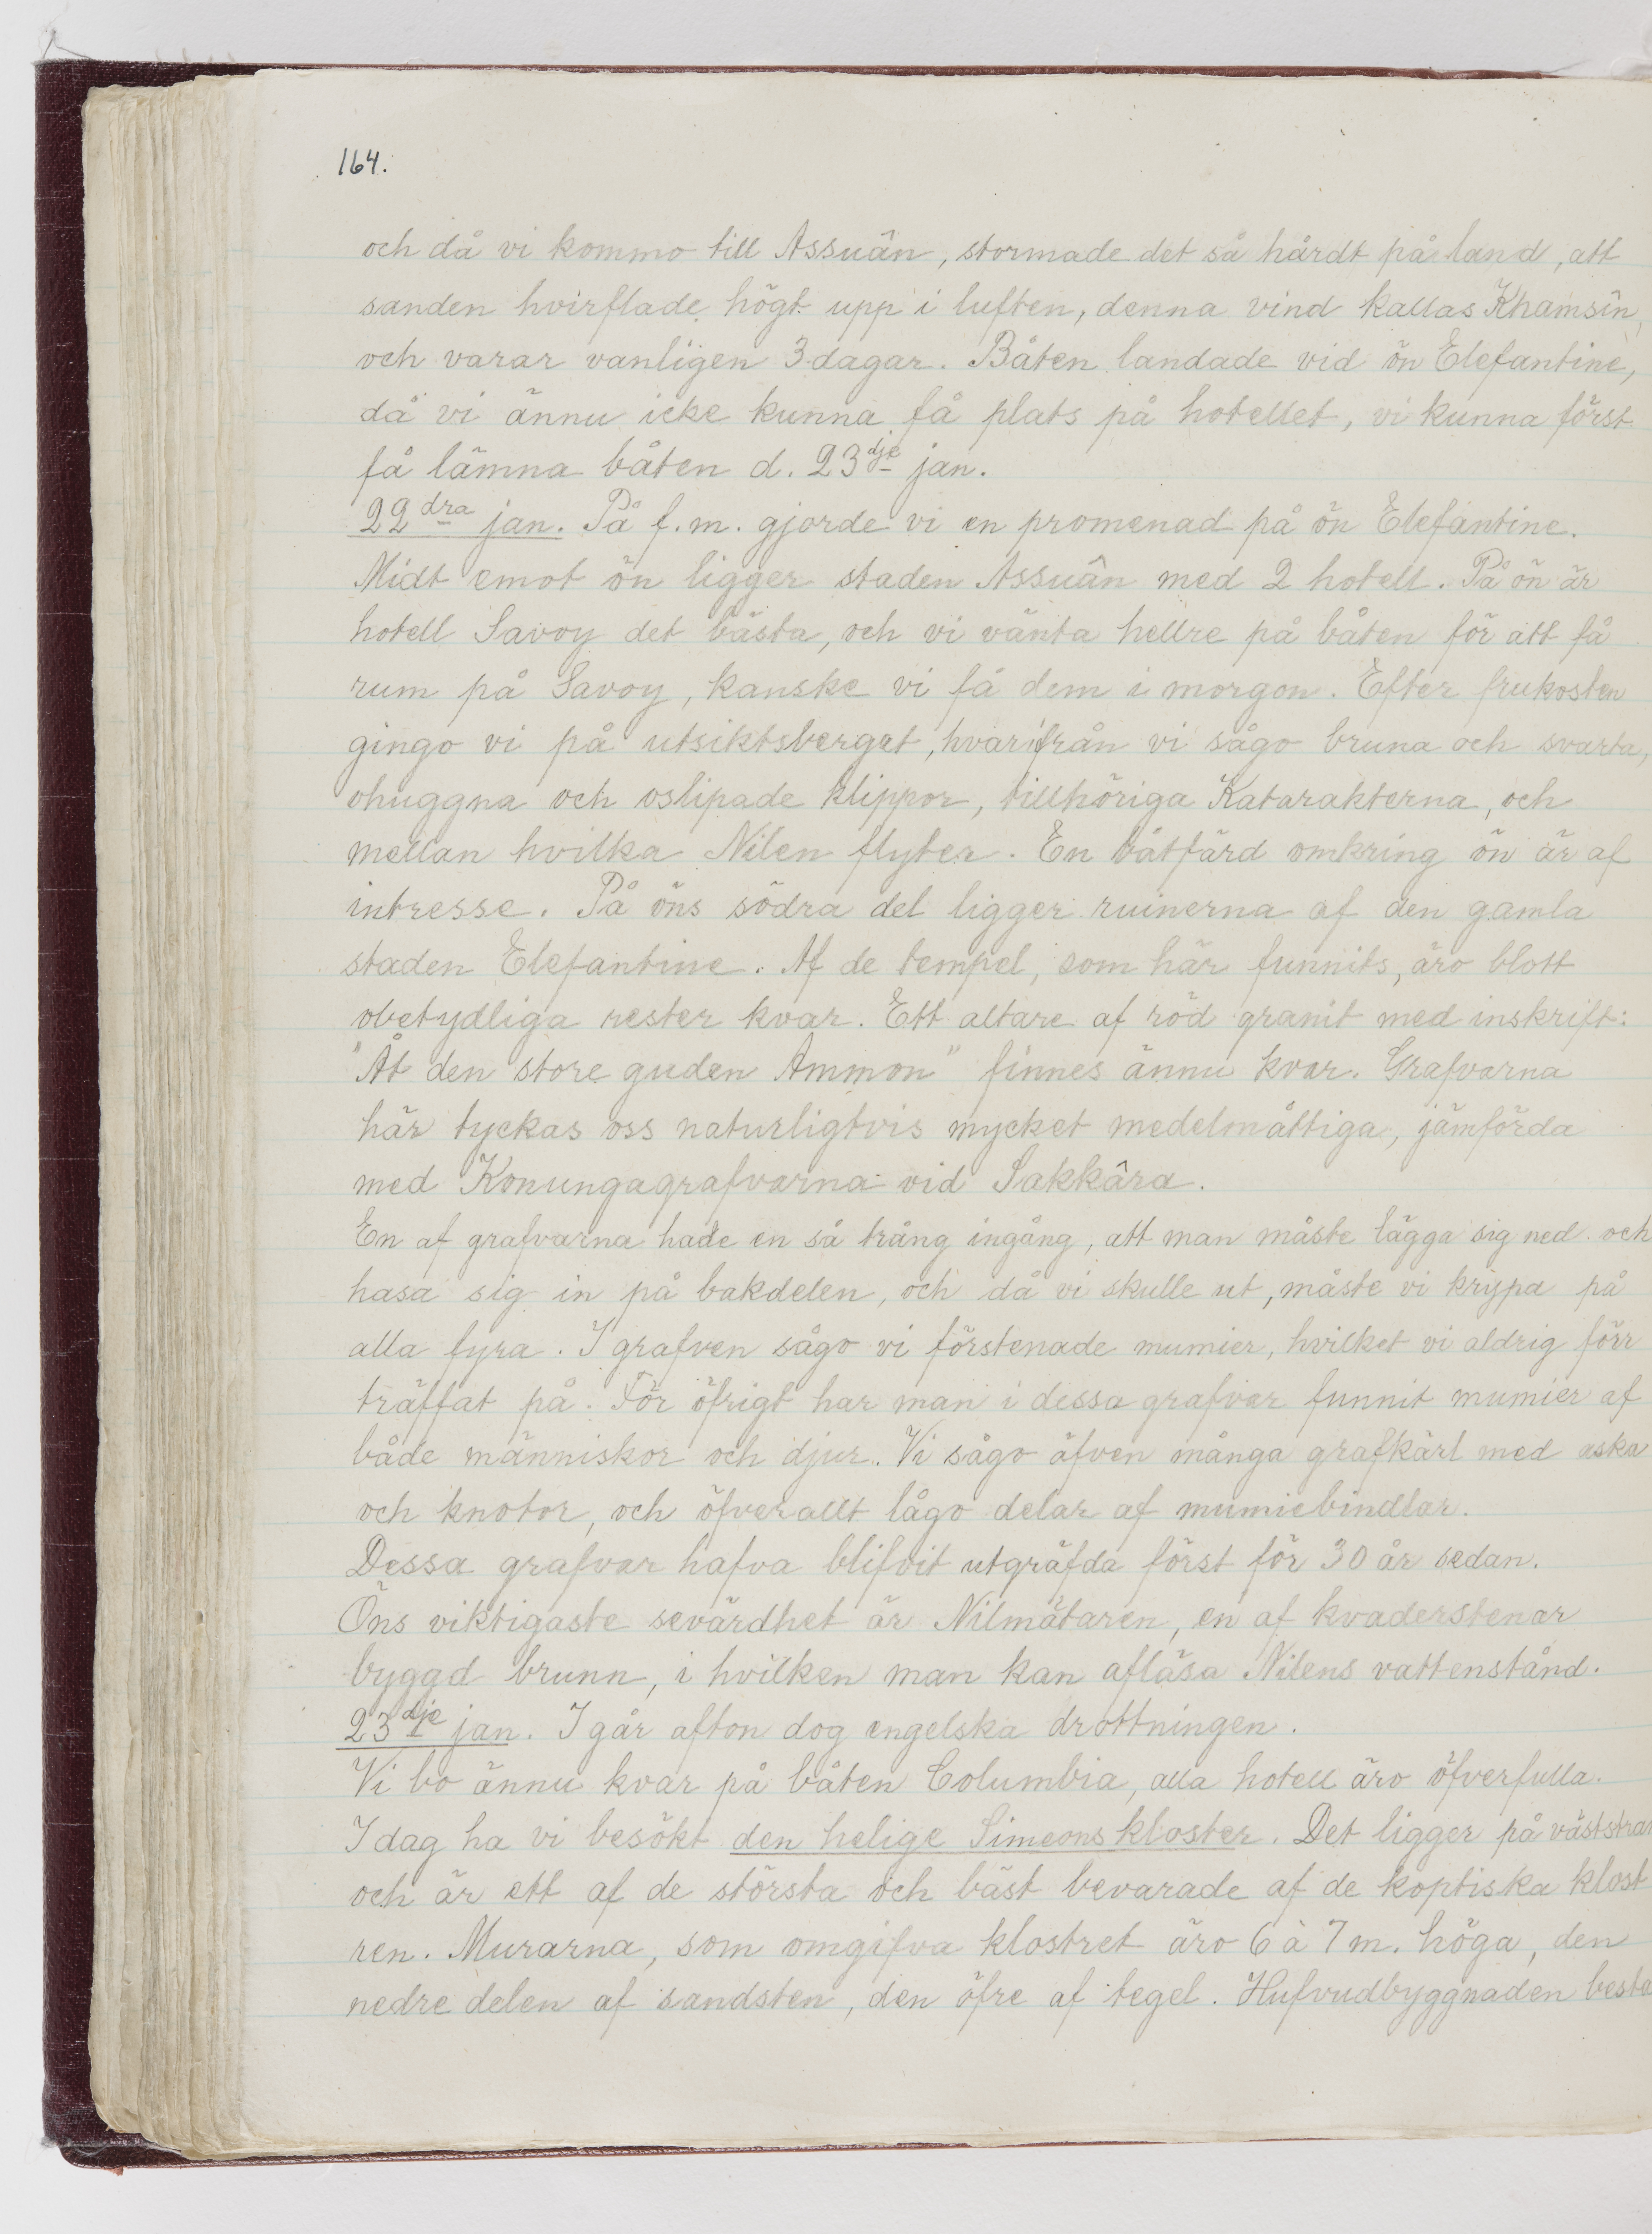 164.
och då vi kommo till Assuân, stormade det så hårdt på land, att
sanden hvirflade högt upp i luften, denna vind kallas Khamsîn,
och varar vanligen 3 dagar. Båten landade vid ön Elefantine,
då vi ännu icke kunna få plats på hotellet, vi kunna först
få lämna båten d. 23dje jan.
22dra jan. På f.m. gjorde vi en promenad på ön Elefantine.
Midt emot ön ligger staden Assuân med 2 hotell. På ön är
hotell Savoy det bästa, och vi vänta hellre på båten för att få
rum på Savoy, kanske vi få dem i morgon. Efter frukosten
gingo vi på utsiktsberget, hvarifrån vi sågo bruna och svarta,
ohuggna och oslipade klippor, tillhöriga Katarakterna, och
mellan hvilka Nilen flyter. En båtfärd omkring ön är af
intresse. På öns södra del ligger ruinerna af den gamla
staden Elefantine. Af de tempel, som här funnits, äro blott
obetydliga rester kvar. Ett altare af röd granit med inskrift:
"Åt den store guden Ammon" finnes ännu kvar. Grafvarna
här tyckas oss naturligtvis mycket medelmåttiga, jämförda
med Konungagrafvarna vid Sakkâra.
En af grafvarna hade en så trång ingång, att man måste lägga sig ned och
hasa sig in på bakdelen, och då vi skulle ut, måste vi krypa på
alla fyra. I grafven sågo vi förstenade mumier, hvilket vi aldrig förr
träffat på. För öfrigt har man i dessa grafvar funnit mumier af
både människor och djur. Vi sågo äfven många grafkärl med aska
och knotor, och öfverallt lågo delar af mumiebindlar.
Dessa grafvar hafva blifvit utgräfda först för 30 år sedan.
Öns viktigaste sevärdhet är Nilmätaren, en af kvaderstenar
byggd brunn, i hvilken man kan afläsa Nilens vattenstånd.
23dje jan. I går afton dog engelska drottningen.
Vi bo ännu kvar på båten Columbia, alla hotell äro öfverfulla.
I dag ha vi besökt den helige Simeons kloster. Det ligger på väststran
och är ett af de största och bäst bevarade af de koptiska klost
ren. Murarna, som omgifva klostret äro 6 à 7 m. höga, den
nedre delen af sandsten, den öfre af tegel. Hufvudbyggnaden beste